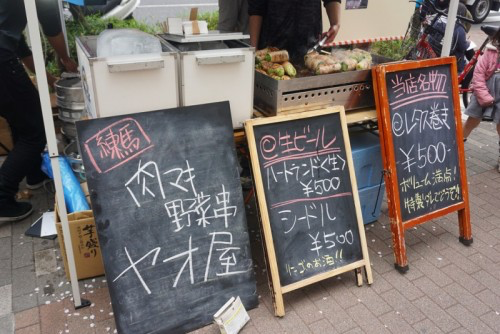 練馬
肉マキ
野菜串
ヤオ屋
◎生ビール
ハートランド<生>
¥500
シードル
¥500
りんごのお酒!!
当店名物
◎レタス巻き
¥500-
ボリューム満点!